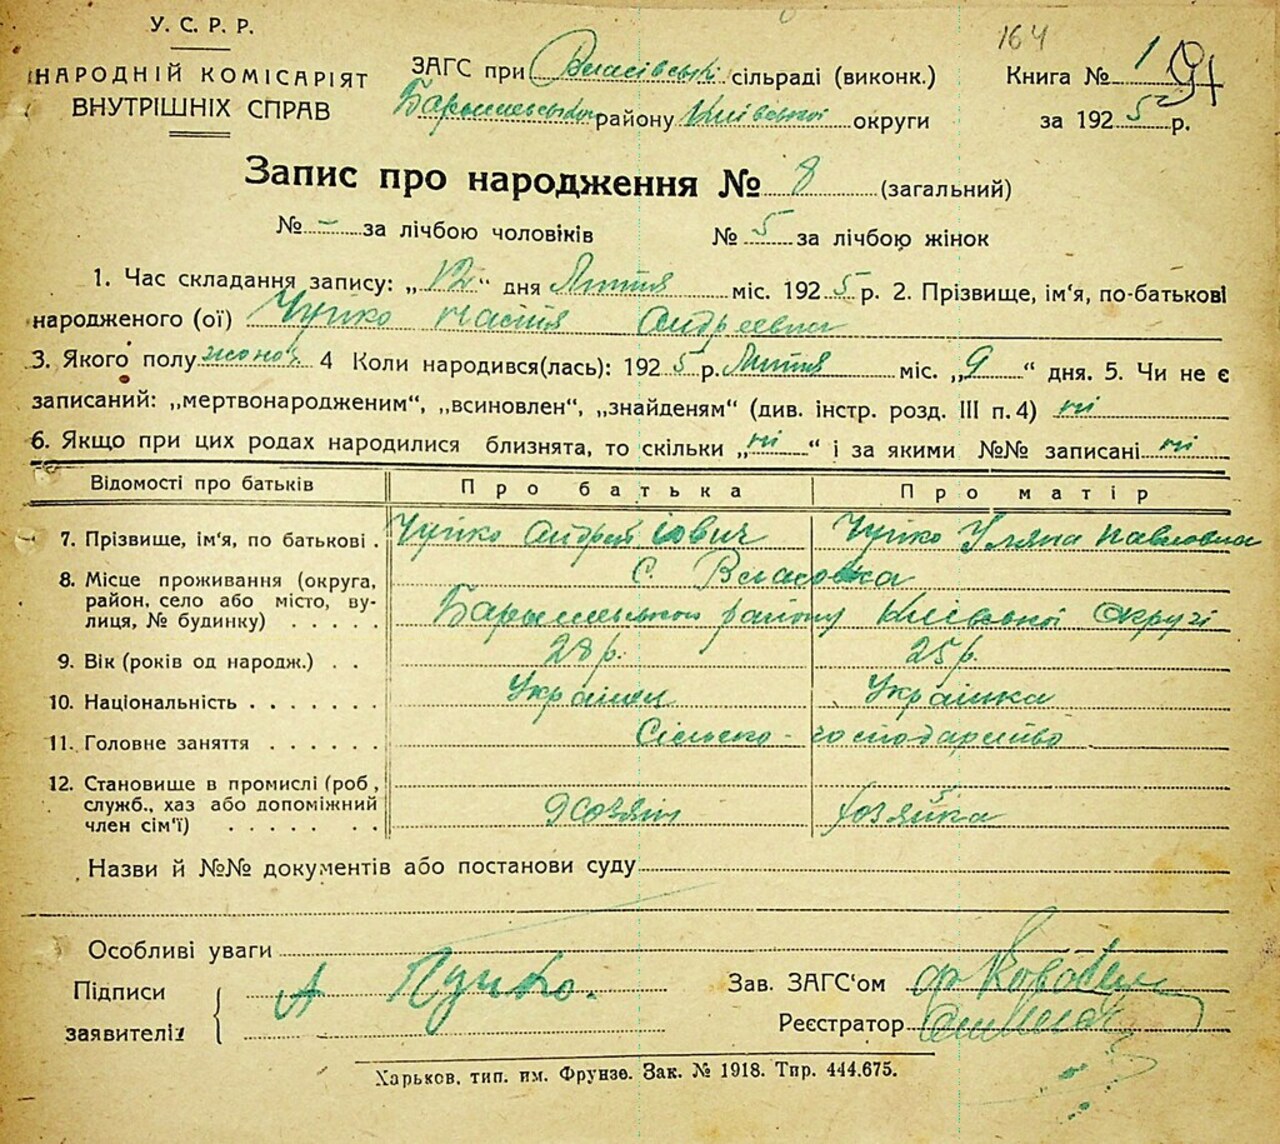 164
У. С. Р. Р.
НАРОДНІЙ КОМІСАРІЯТ
ВНУТРІШНІХ СПРАВ
ЗАГС при Власівські сільраді (виконк.)
Баришевського району Київської округи
Книга № 1
за 1925 р.
Запис про народження № 8 (загальний)
№ - за лічбою чоловіків № 5 за лічбою жінок
1. Час складання запису: „12“ дня Лютня міс. 1925 р. 2. Прізвище, ім‘я, по-батькові
народженого (ої) Чупко Настя Андреевна
3. Якого полу жоноч. 4 Коли народився(лась): 1925 р. Лютня міс. „9“ дня. 5. Чи не є
записаний: „мертвонародженим“, „всиновлен“, „знайденям“ (див. інстр. розд. III п. 4) ні
6. Якщо при цих родах народилися близнята, то скільки „ні“ і за якими №№ записані ні
Відомості про батьків Про батька Про матір
7. Прізвище, ім‘я, по батькові. Чупко Андрей Іович Чупко Уляна Павловна
8. Місце проживання (округа, район, село або місто, вулиця, № будинку) с. Власовка
Баришевського району Київської округі
9. Вік (років од народж.) 28 р. 25 р.
10. Національність Українец Українка
11. Головне заняття Сільско-господарство
12. Становище в промислі (роб, служб., хаз або допоміжний член сім‘ї) Хозяін Хозяйка
Назви й №№ документів або постанови суду
Особливі уваги
Підписи заявителів А
Зав. ЗАГС‘ом
Реєстратор
Харьков, тип. им. Фрунзе. Зак. № 1918. Тир. 444.675.